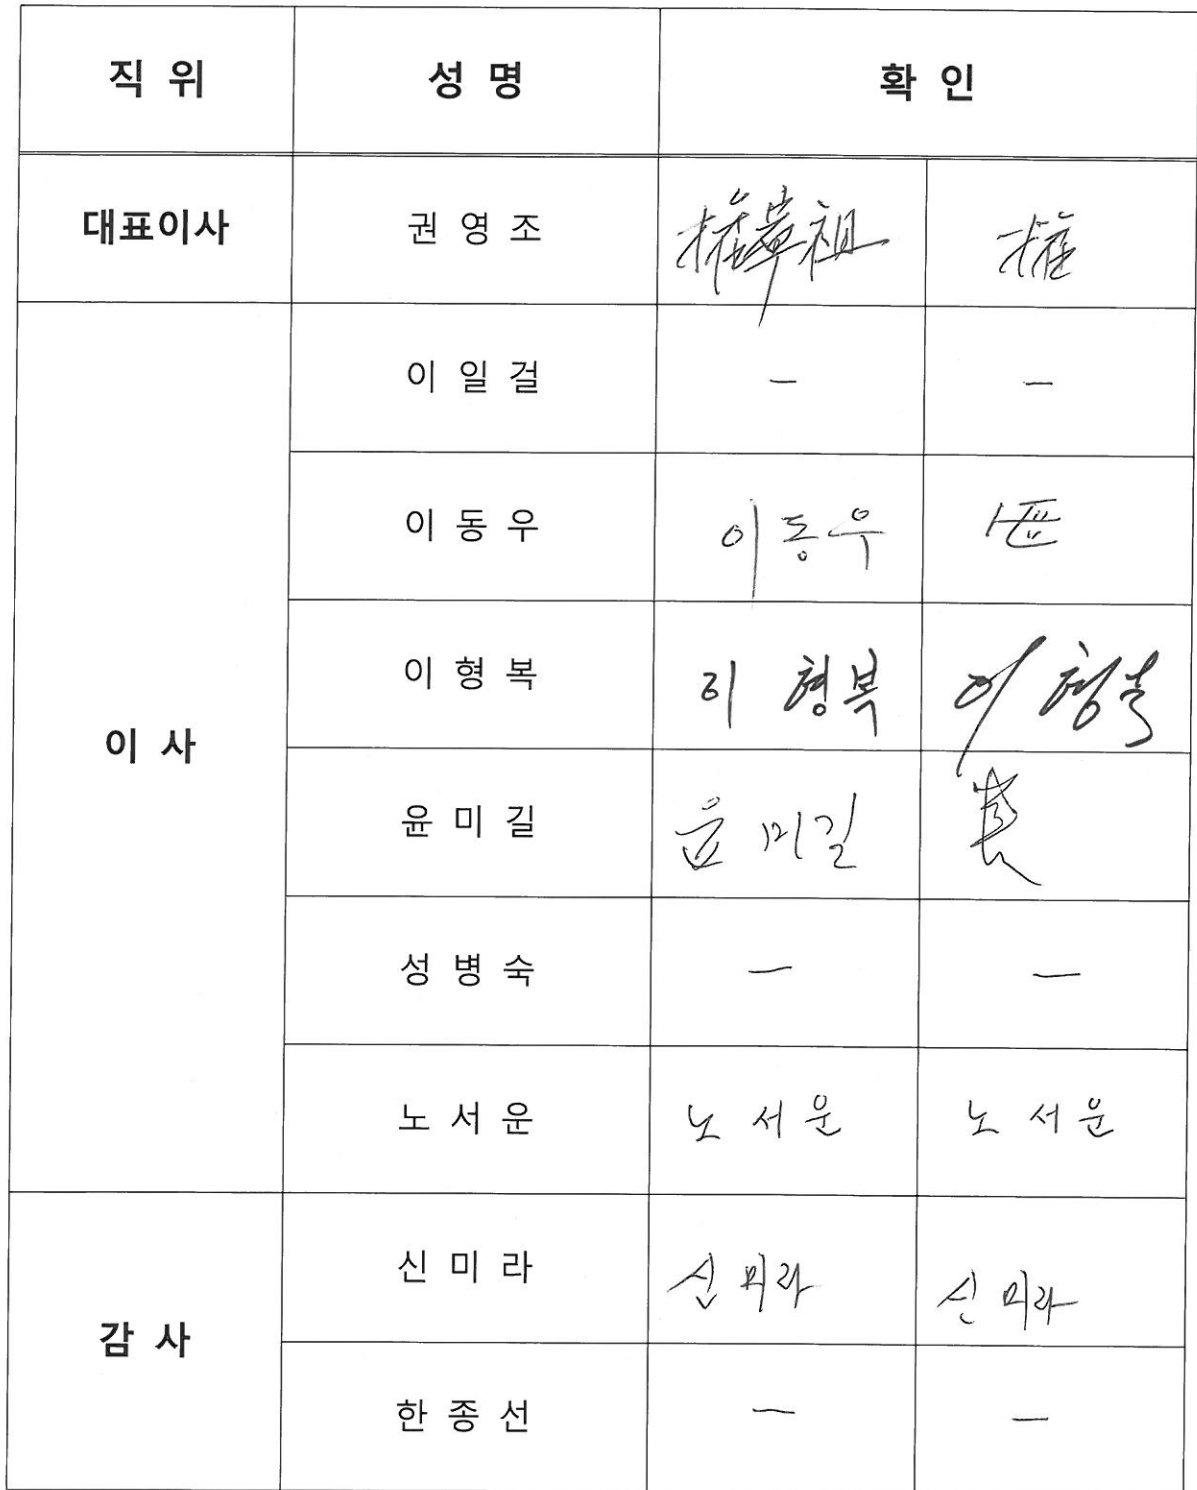 직 위 성 명 확 인
대표이사 권 영 조 權 權
이 일 걸 - -
이 동 우 이동우
이 형 복 이 형복 이 형복
이 사
윤 미 길 윤 미길
성 병 숙 - -
노 서 운 노 서 운 노 서 운
신 미 라 신 미라 신 미라
감 사
한 종 선 - -